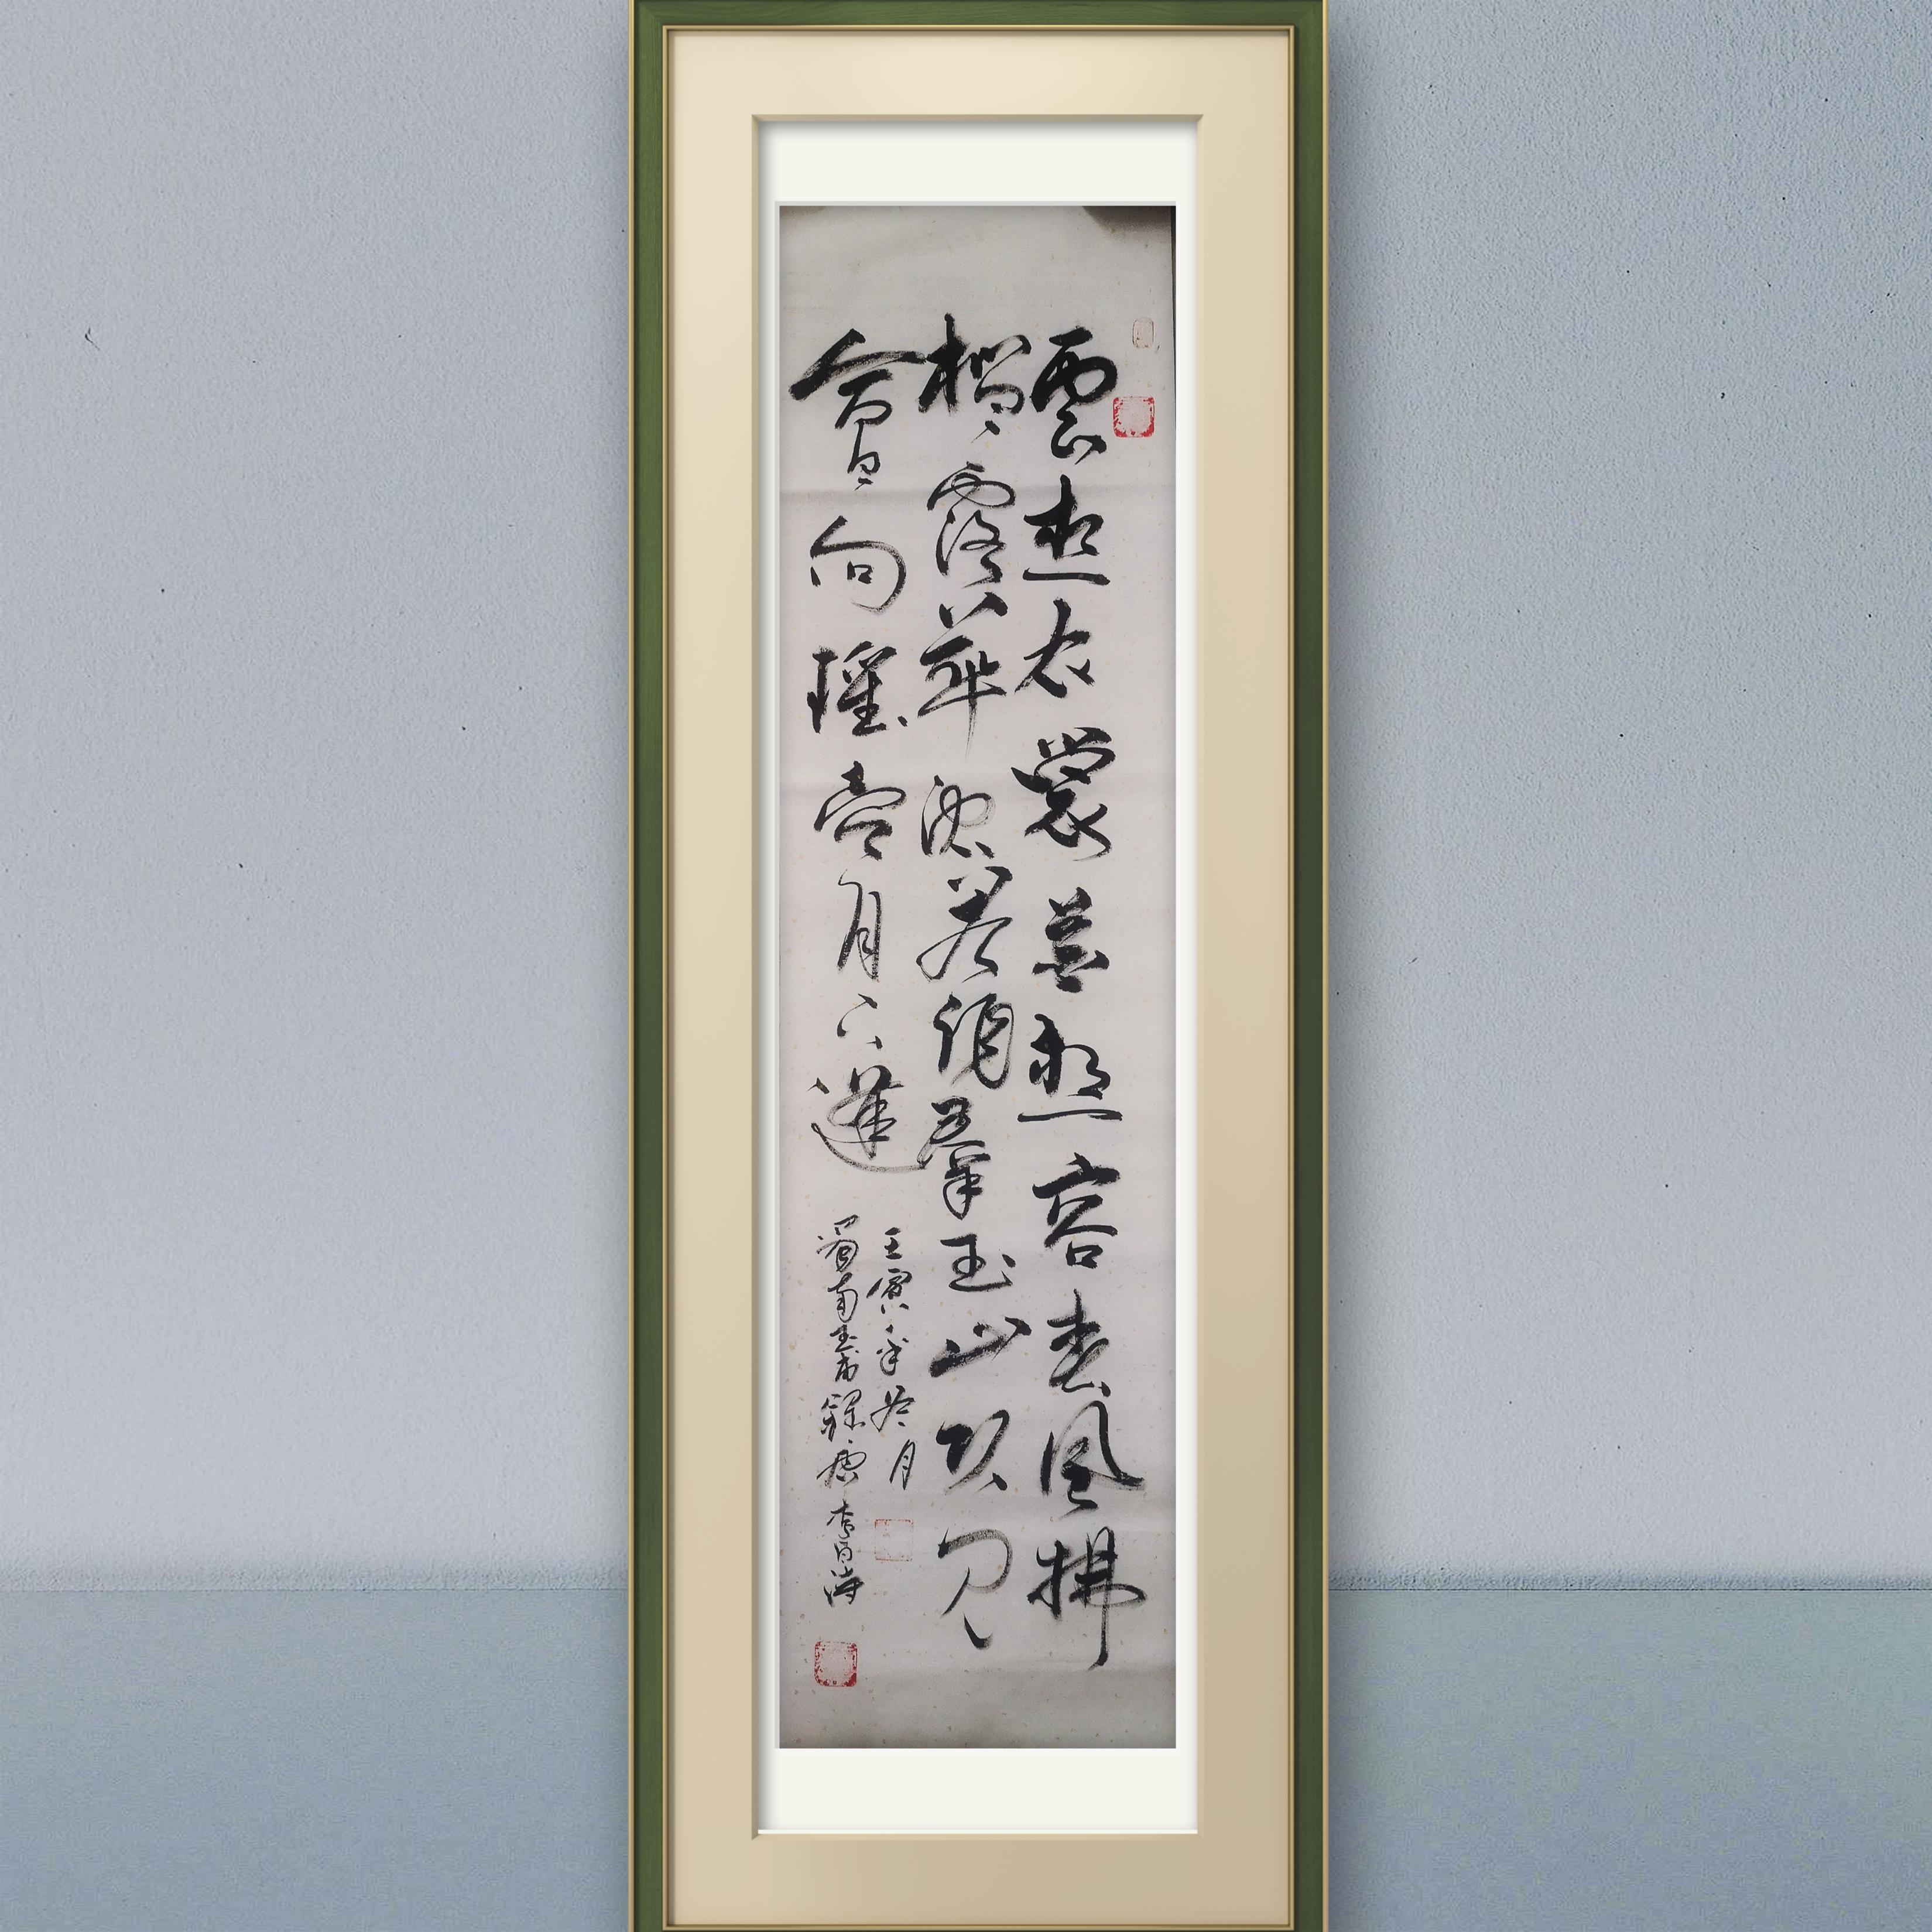 雲想衣裳花想容春風拂
檻露華濃若非羣玉山頭見
會向瑤臺月下逢
壬寅年冬月
蜀南錄唐李白詩